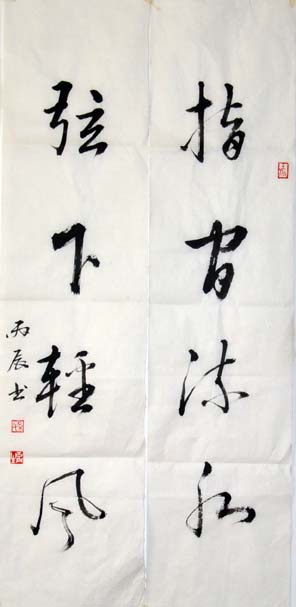 指間流水
弦下輕風
丙辰书